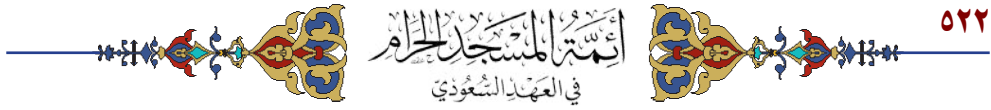 ٥٢٢
أَئِمَّةُ المَسْجِدِ الحَرَامِ
في العَهْدِ السُّعُوديّ